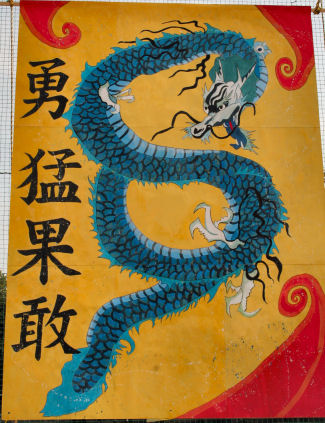 勇
猛
果
敢